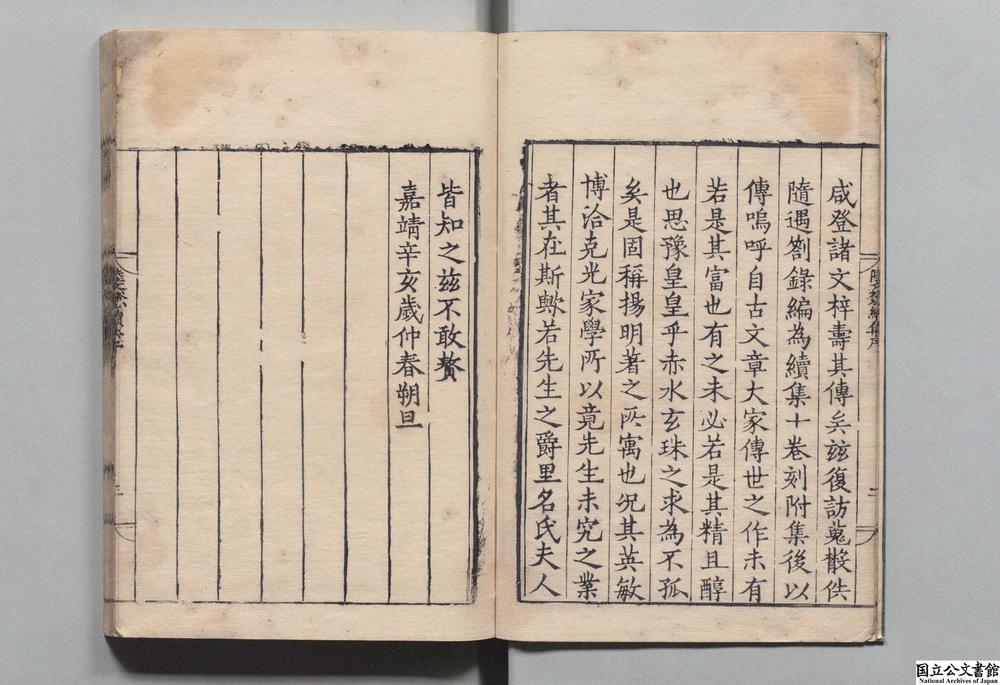 咸登諸文梓壽其傳矣玆復訪蒐散佚
隨遇劄錄編為續集十卷刻附集後以
傳嗚呼自古文章大家傳世之作未有
若是其富也有之未必若是其精且醇
也思豫皇皇乎赤水玄珠之求為不孤
矣是固稱揚明著之所寓也况其英敏
博洽克光家學所以竟先生未究之業
者其在斯歟若先生之爵里名氏夫人
皆知之玆不敢贅
嘉靖辛亥歲仲春朔旦
国立公文書館
National Archives of Japan